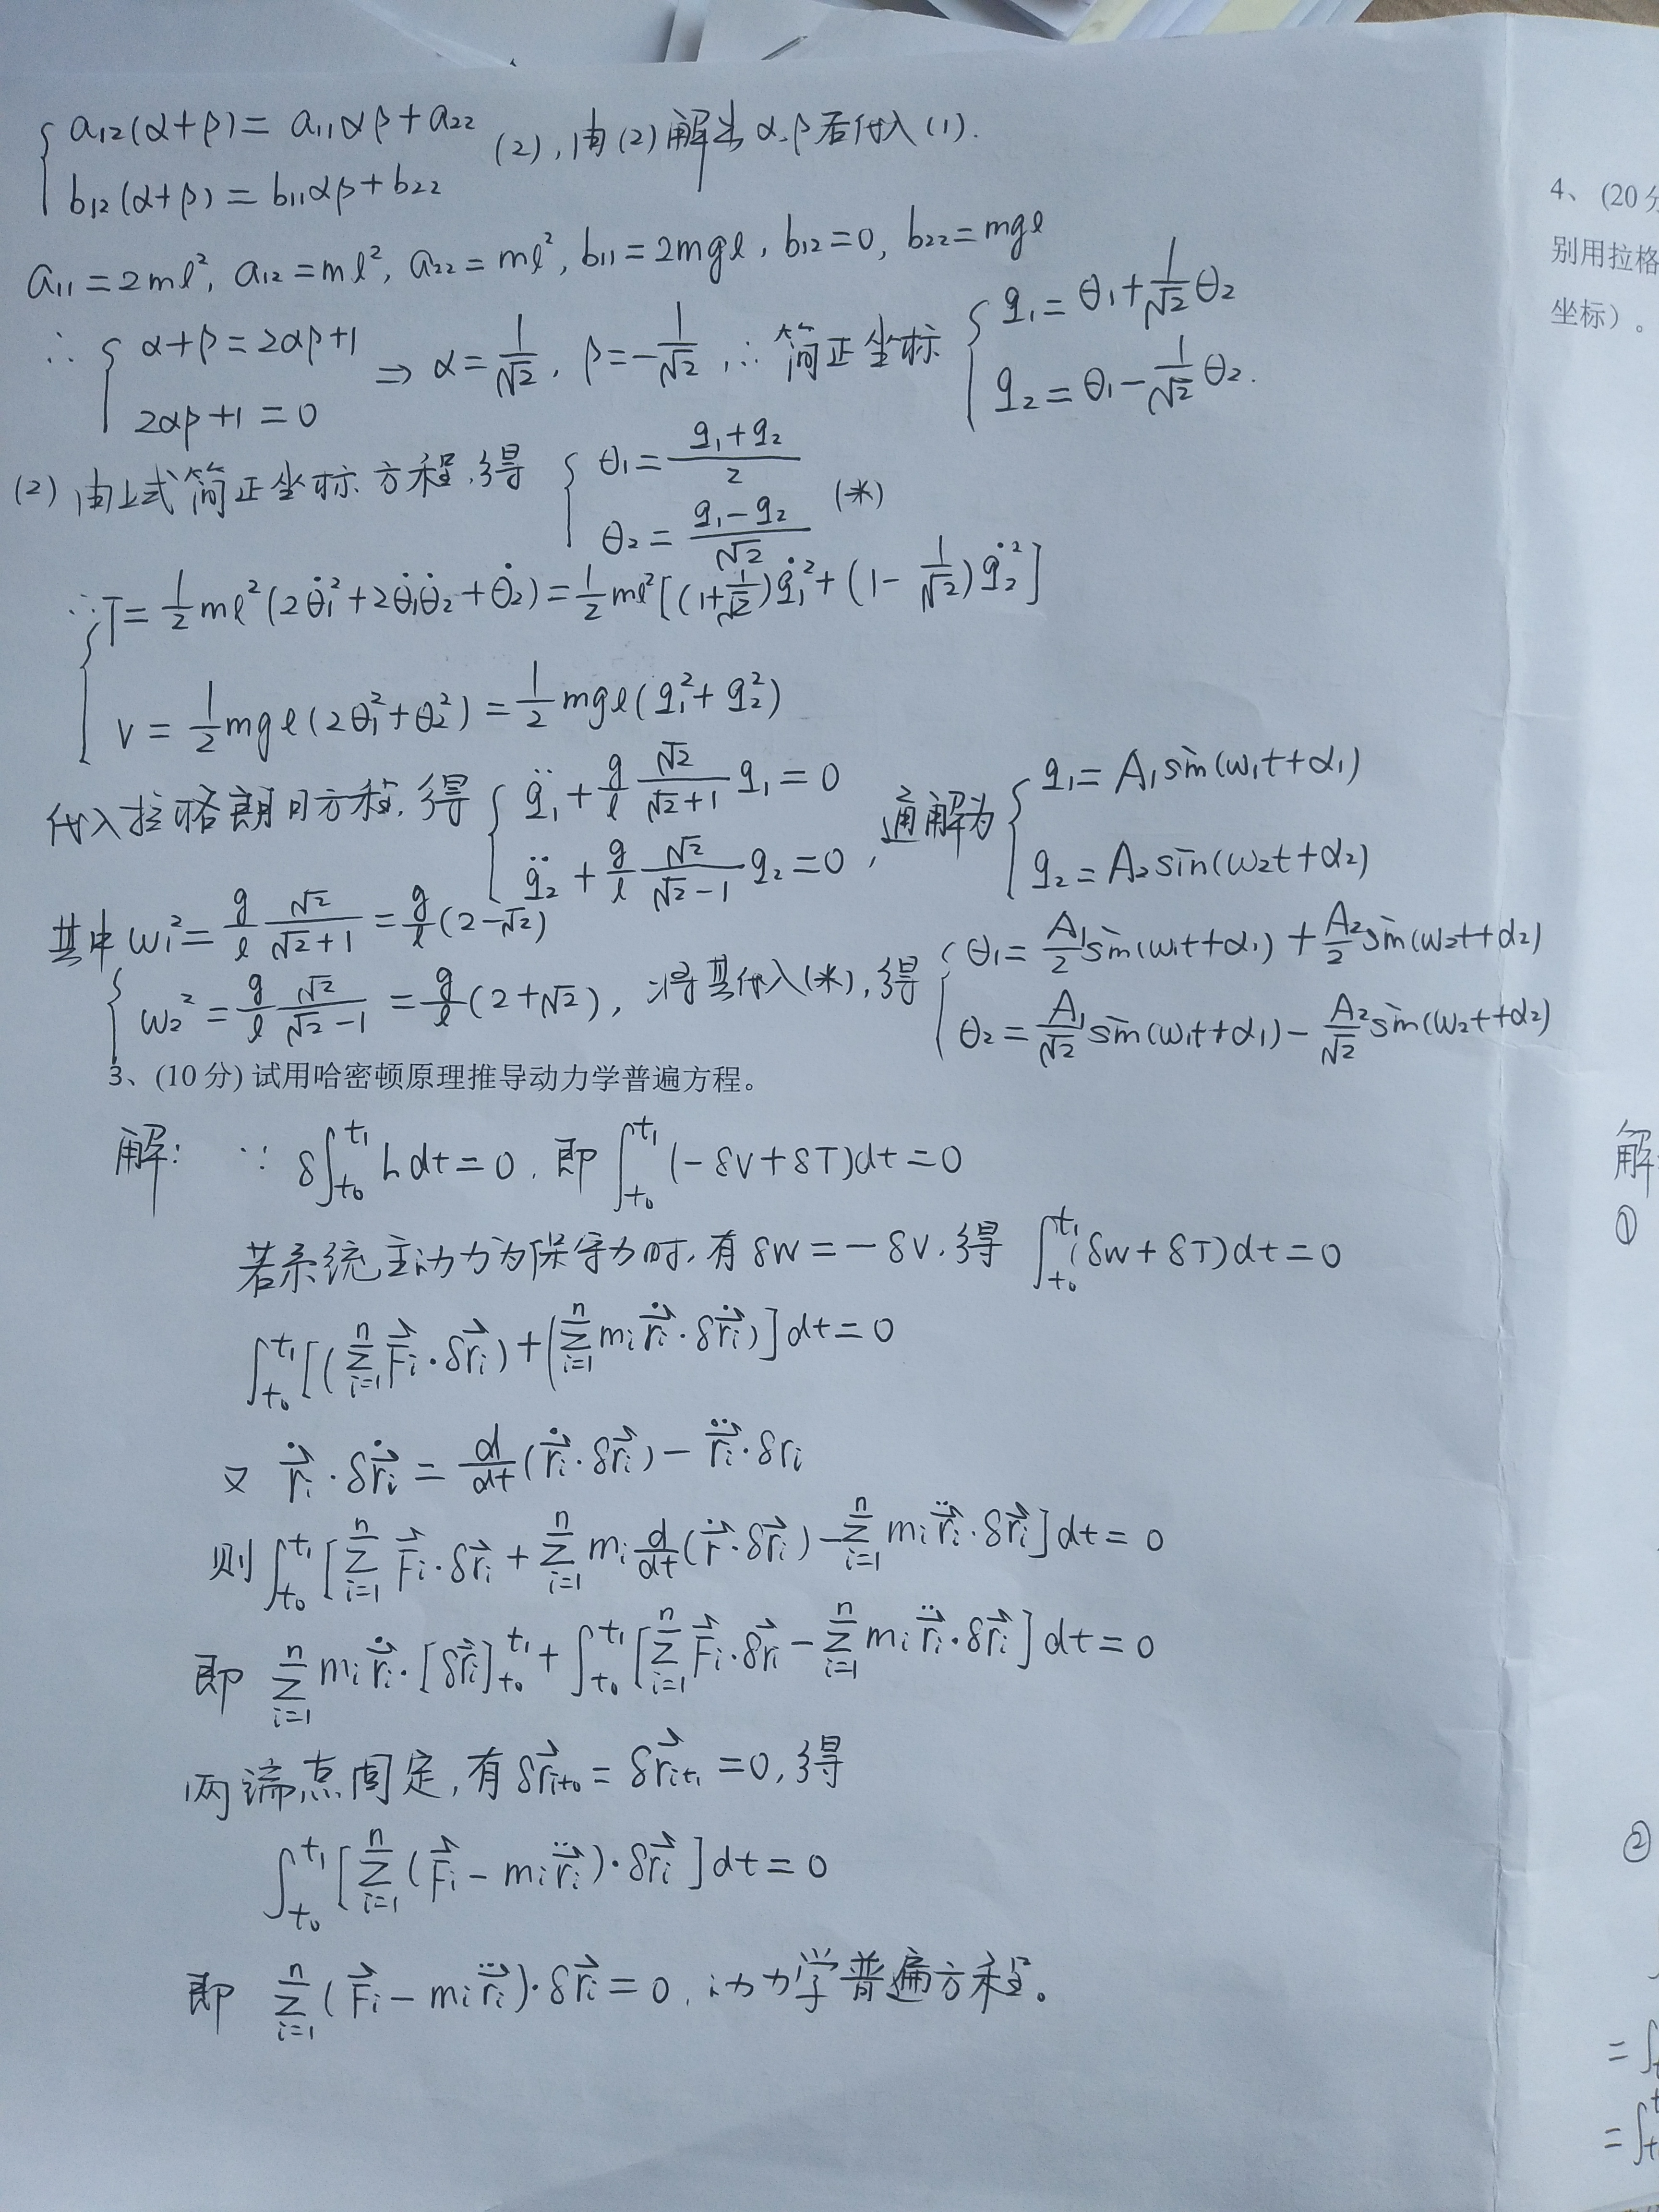 { a₁₂(α+β) = a₁₁αβ + a₂₂
b₁₂(α+β) = b₁₁αβ + b₂₂ (2), 由(2)解出α.β后代入(1).
a₁₁ = 2ml², a₁₂ = ml², a₂₂ = ml², b₁₁ = 2mgl, b₁₂ = 0, b₂₂ = mgl
∴ { α+β = 2αβ+1
2αβ+1 = 0 ⇒ α = 1/√2, β = -1/√2, ∴ 简正坐标 { q₁ = θ₁ + 1/√2 θ₂
q₂ = θ₁ - 1/√2 θ₂.
(2) 由上式简正坐标方程,得 { θ₁ = (q₁+q₂)/2
θ₂ = (q₁-q₂)/√2 (*)
∴ { T = 1/2 ml²(2θ̇₁² + 2θ̇₁θ̇₂ + θ̇₂) = 1/2 ml²[(1+1/√2)q̇₁² + (1-1/√2)q̇₂²]
V = 1/2 mgl(2θ₁² + θ₂²) = 1/2 mgl(q₁² + q₂²)
代入拉格朗日方程,得 { q̈₁ + g/l √2/(√2+1) q₁ = 0
q̈₂ + g/l √2/(√2-1) q₂ = 0, 通解为 { q₁ = A₁sin(ω₁t+α₁)
q₂ = A₂sin(ω₂t+α₂)
其中 { ω₁² = g/l √2/(√2+1) = g/l (2-√2)
ω₂² = g/l √2/(√2-1) = g/l (2+√2), 将其代入(*),得 { θ₁ = A₁/2 sin(ω₁t+α₁) + A₂/2 sin(ω₂t+α₂)
θ₂ = A₁/√2 sin(ω₁t+α₁) - A₂/√2 sin(ω₂t+α₂)
3、(10 分) 试用哈密顿原理推导动力学普遍方程。
解: ∵ δ∫_{t₀}^{t₁} L dt = 0. 即 ∫_{t₀}^{t₁} (-δV+δT)dt = 0
若系统主动力为保守力时,有 δW = -δV. 得 ∫_{t₀}^{t₁} (δW+δT)dt = 0
∫_{t₀}^{t₁} [(∑_{i=1}^{n} F⃗ᵢ·δr⃗ᵢ) + (∑_{i=1}^{n} mᵢ r⃗̇ᵢ·δr⃗̇ᵢ)]dt = 0
又 r⃗̇ᵢ·δr⃗̇ᵢ = d/dt (r⃗̇ᵢ·δr⃗ᵢ) - r⃗̈ᵢ·δrᵢ
则 ∫_{t₀}^{t₁} [∑_{i=1}^{n} F⃗ᵢ·δr⃗ᵢ + ∑_{i=1}^{n} mᵢ d/dt (r⃗̇·δr⃗ᵢ) - ∑_{i=1}^{n} mᵢ r⃗̈ᵢ·δr⃗ᵢ]dt = 0
即 ∑_{i=1}^{n} mᵢ r⃗̇ᵢ·[δr⃗ᵢ]_{t₀}^{t₁} + ∫_{t₀}^{t₁} [∑_{i=1}^{n} F⃗ᵢ·δr⃗ᵢ - ∑_{i=1}^{n} mᵢ r⃗̈ᵢ·δr⃗ᵢ]dt = 0
两端点固定,有 δr⃗_{it₀} = δr⃗_{it₁} = 0,得
∫_{t₀}^{t₁} [∑_{i=1}^{n} (F⃗ᵢ - mᵢ r⃗̈ᵢ)·δr⃗ᵢ]dt = 0
即 ∑_{i=1}^{n} (F⃗ᵢ - mᵢ r⃗̈ᵢ)·δr⃗ᵢ = 0, 动力学普遍方程。
4、(20分
别用拉格
坐标）。
解
①
②
= ∫
= ∫